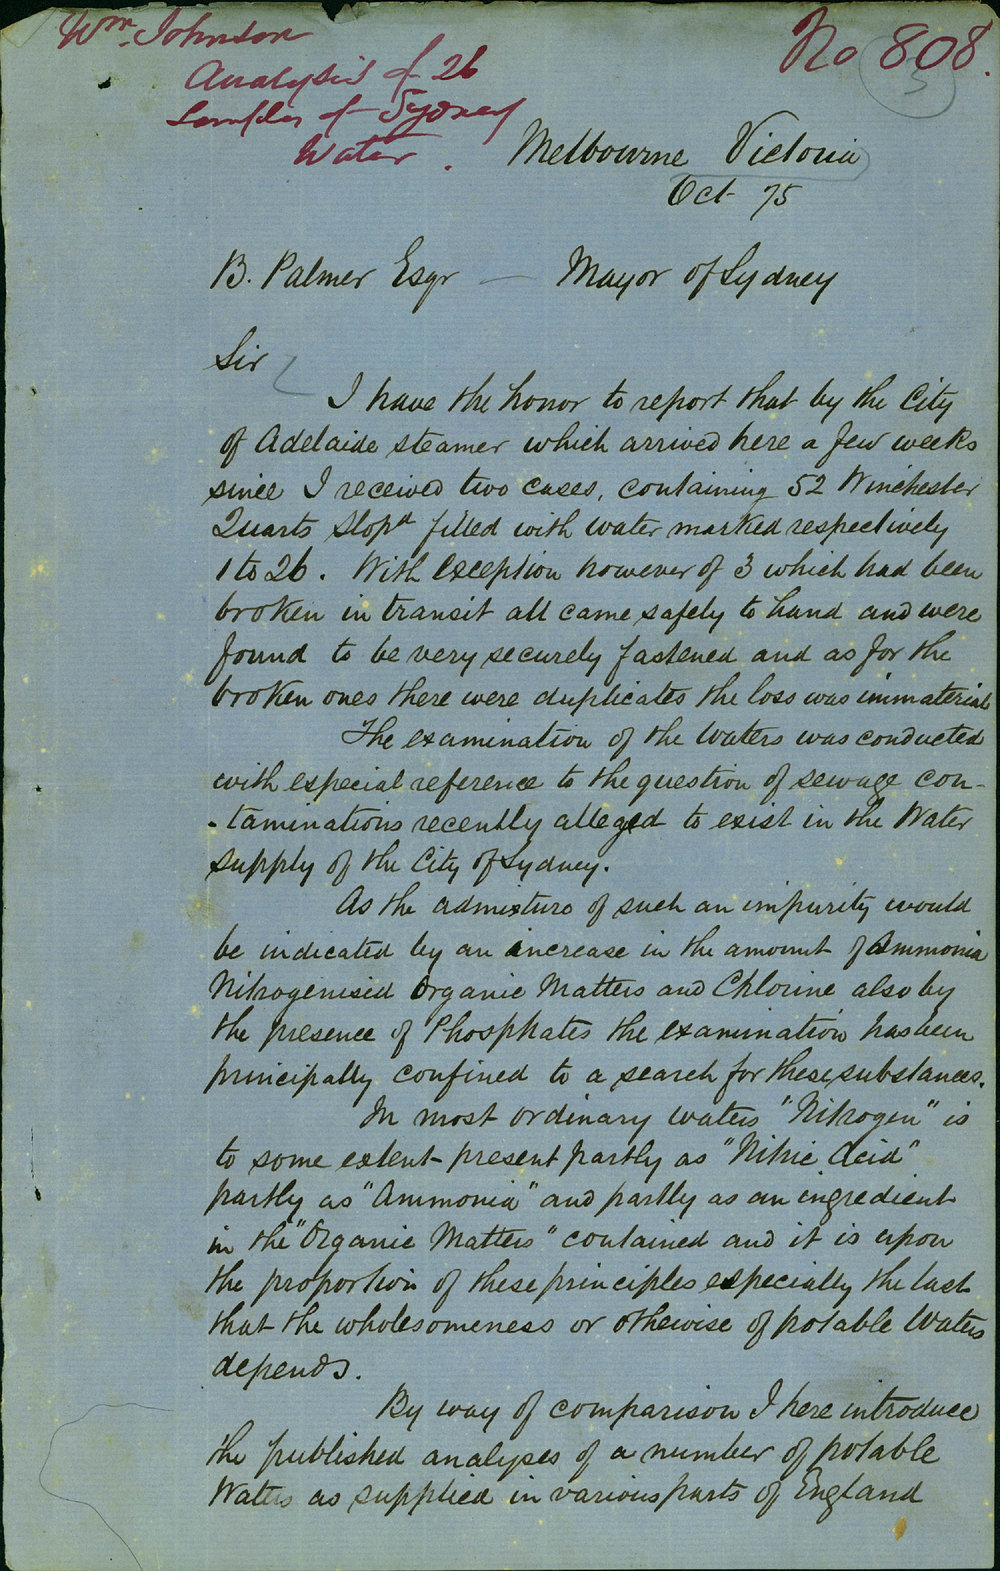 Wm. Johnson
Analysis of 26
Samples of Sydney
Water.
No 808.
5
Melbourne Victoria
Oct 75
B. Palmer Esqr — Mayor of Sydney
Sir
I have the honor to report that by the City
of Adelaide steamer which arrived here a few weeks
since I received two cases, containing 52 Winchester
Quarts Stopd filled with water marked respectively
1 to 26. With exception however of 3 which had been
broken in transit all came safely to hand and were
found to be very securely fastened and as for the
broken ones there were duplicates the loss was immaterial
The examination of the waters was conducted
with especial reference to the question of sewage con-
-taminations recently alleged to exist in the Water
supply of the City of Sydney.
As the admixture of such an impurity would
be indicated by an increase in the amount of Ammonia
Nitrogenised Organic Matters and Chlorine also by
the presence of Phosphates the examination has been
principally confined to a search for these substances.
In most ordinary waters "Nitrogen" is
to some extent present partly as "Nitric Acid"
partly as "Ammonia" and partly as an ingredient
in the "Organic Matters" contained and it is upon
the proportion of these principles especially the last
that the wholesomeness or otherwise of potable Waters
depends.
By way of comparison I here introduce
the published analyses of a number of potable
Waters as supplied in various parts of England